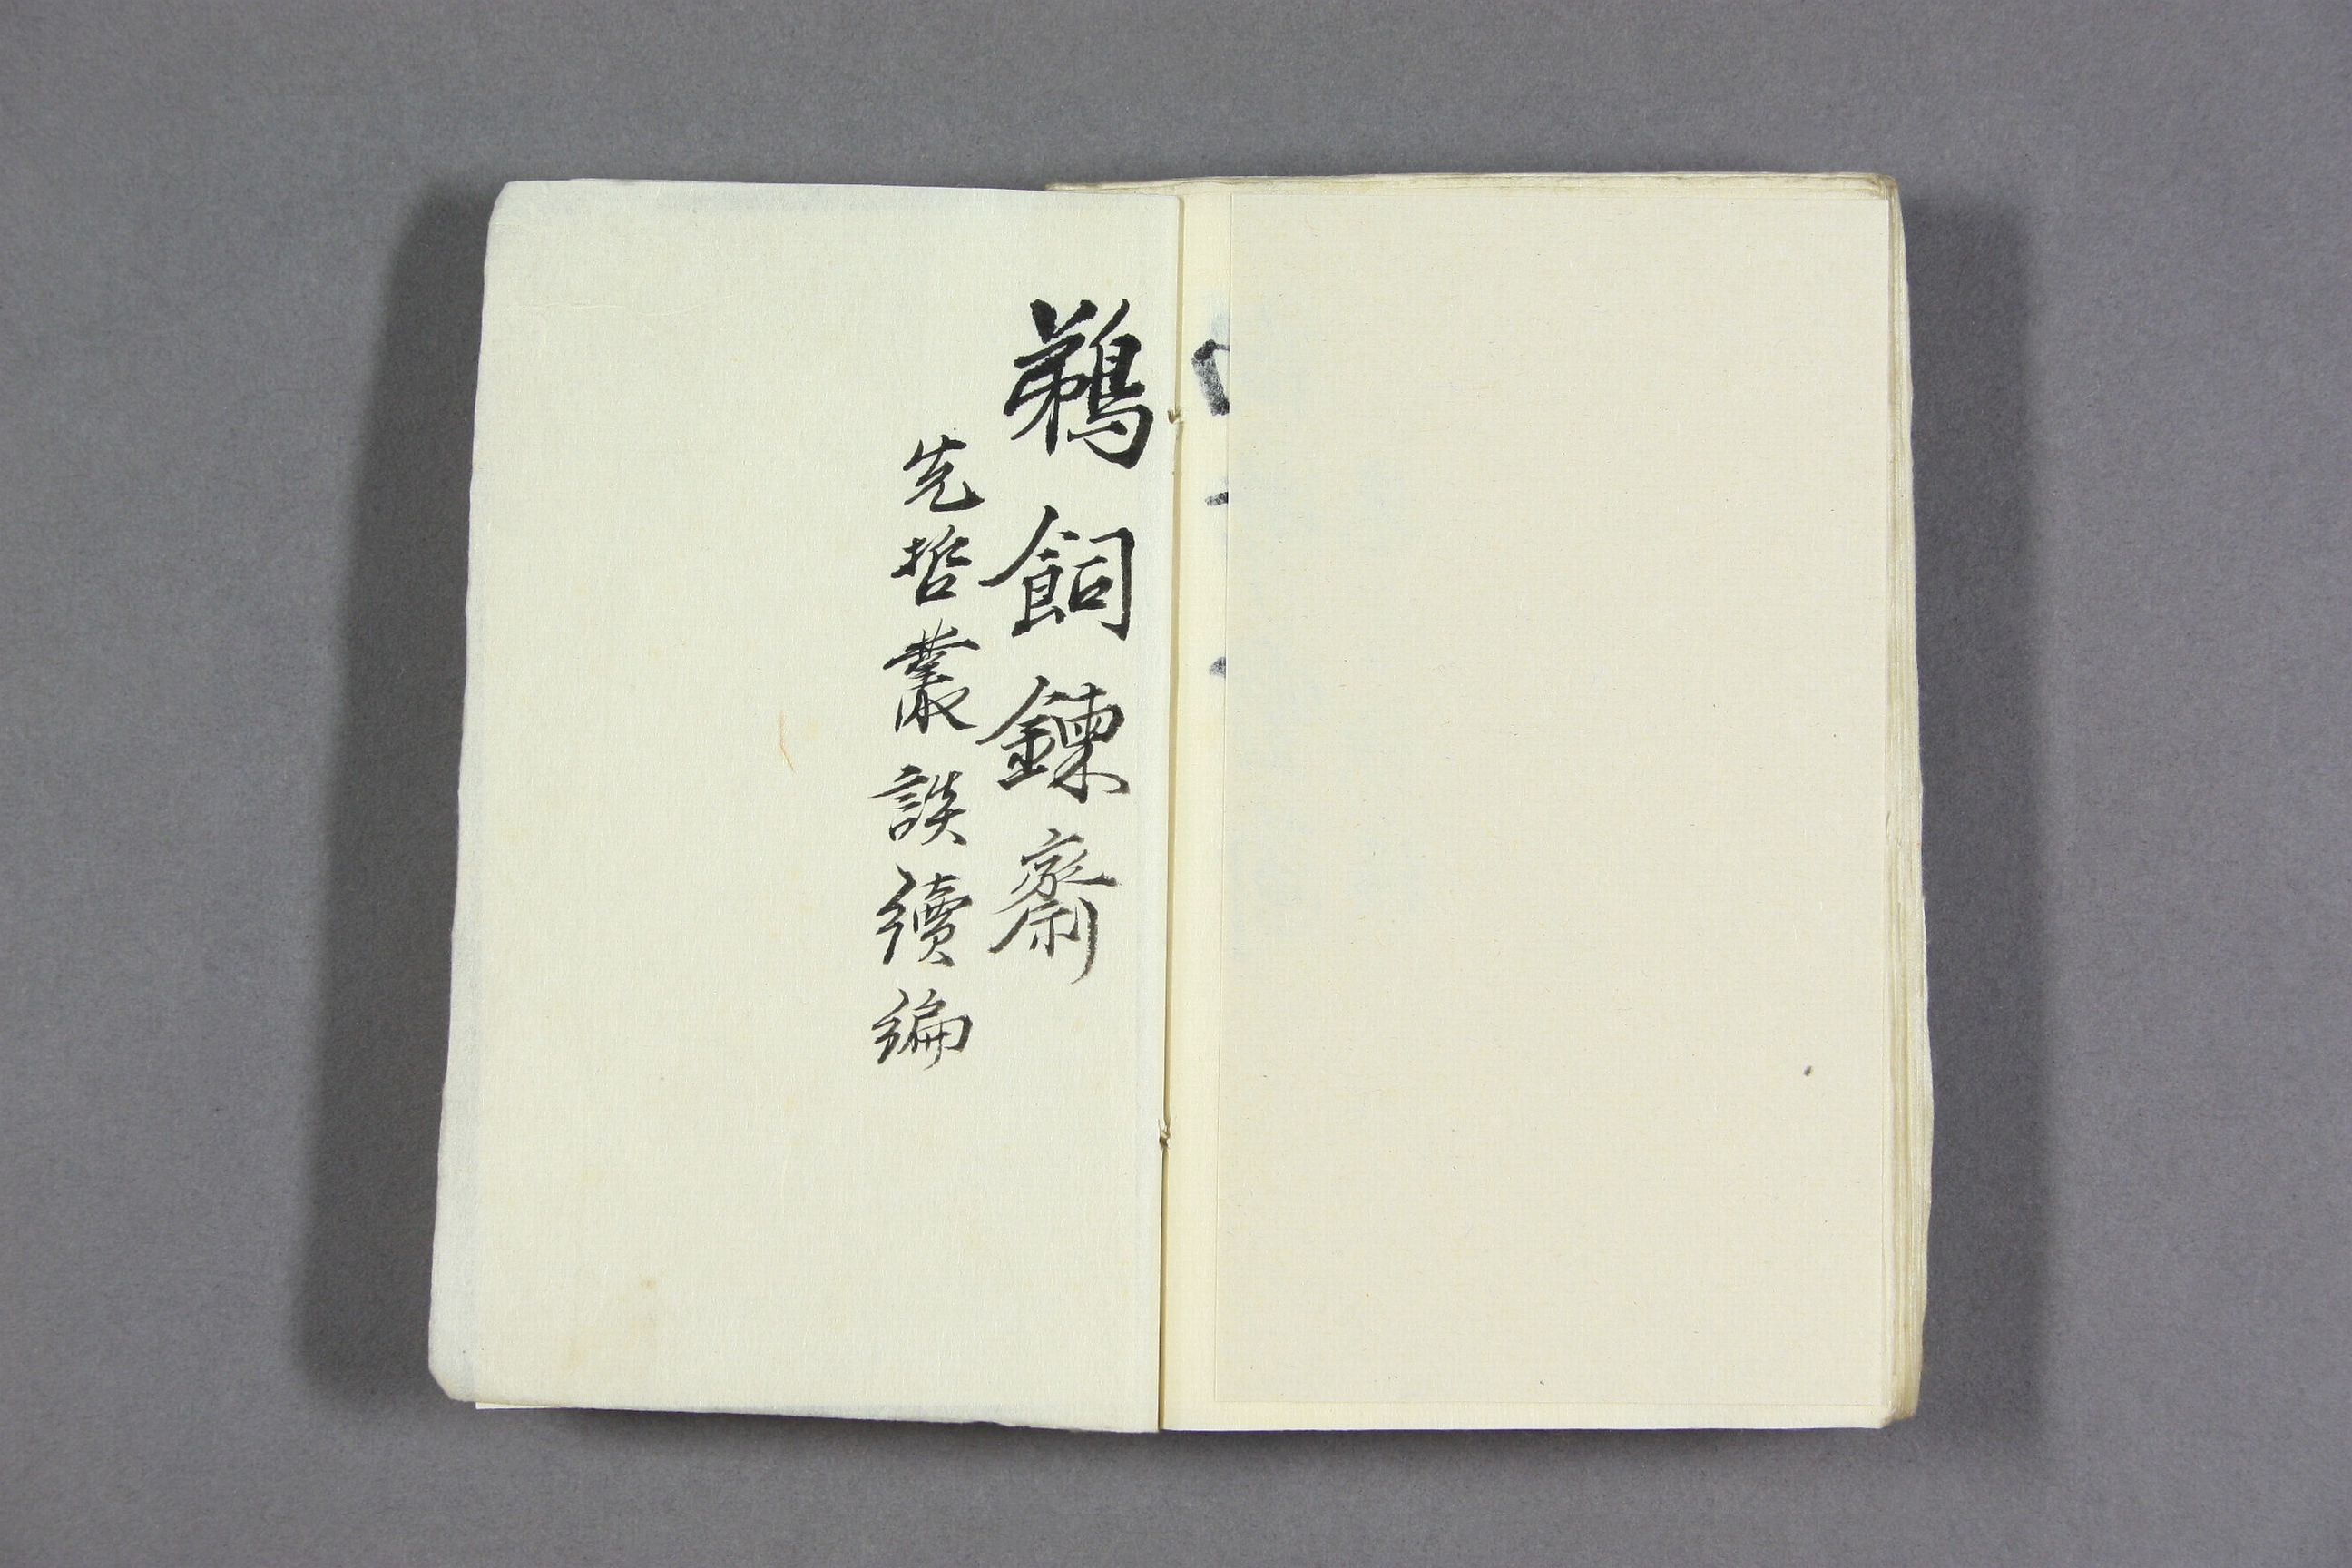 鵜飼錬齋
先哲叢談續編